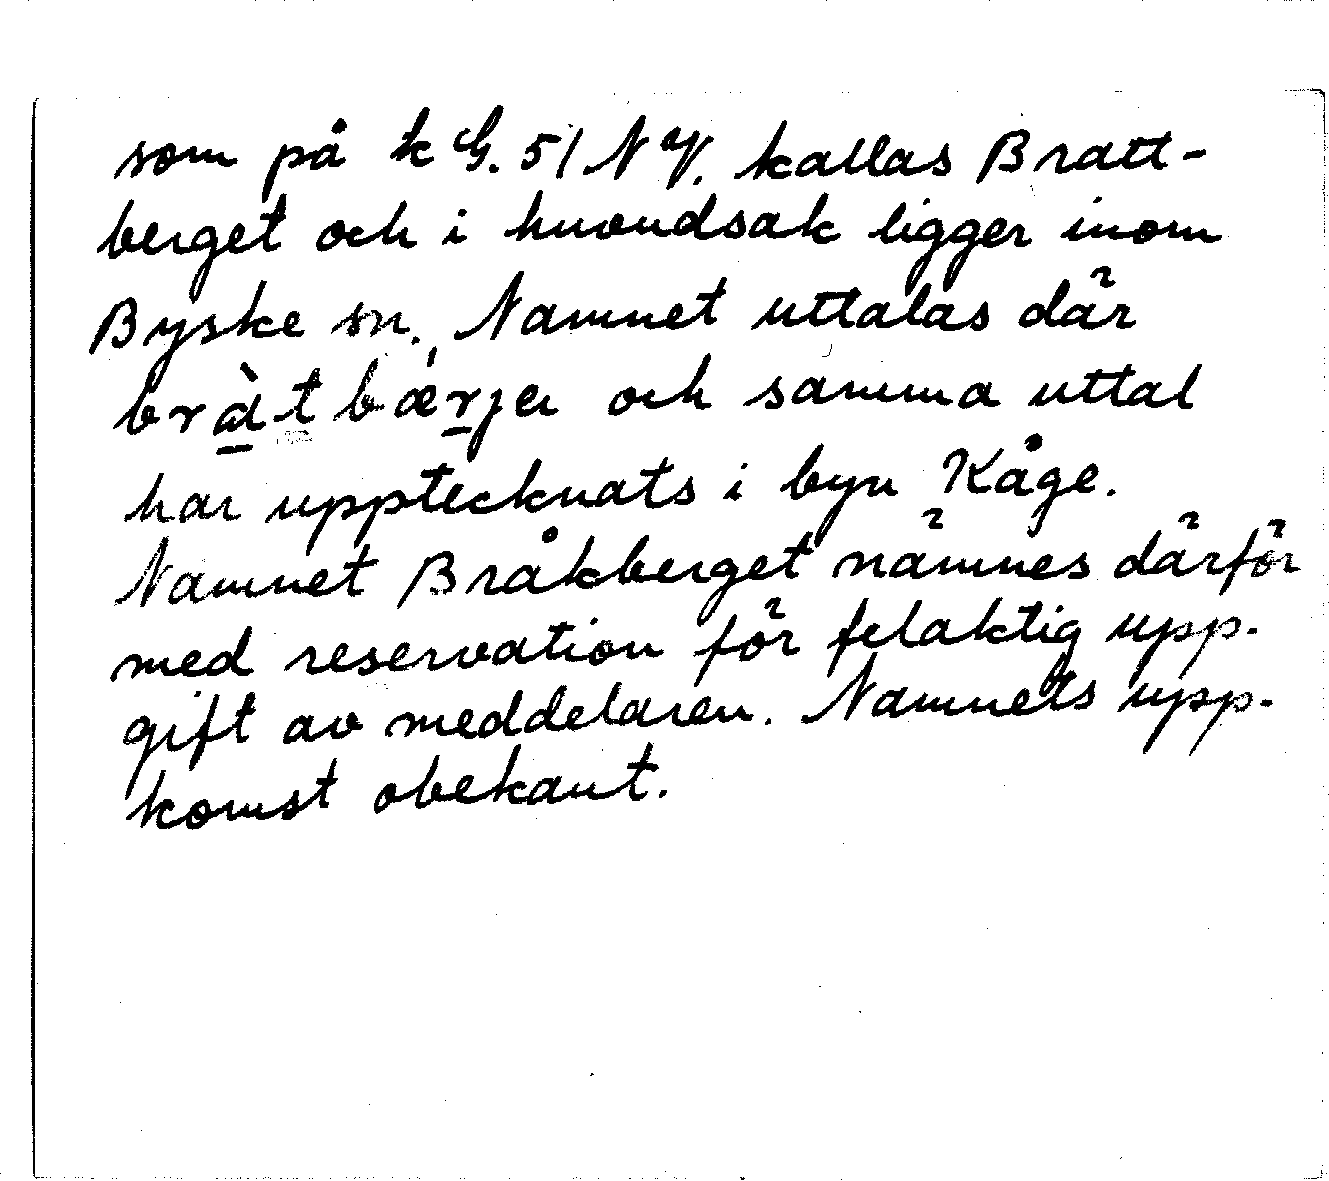 som på k G. 51 NV. kallas Bratt-
berget och i huvudsak ligger inom
Byske sn. Namnet uttalas där
bràt bærjen och samma uttal
har upptecknats i byn Kåge.
Namnet Bråkberget nämnes därför
med reservation för felaktig upp-
gift av meddelaren. Namnets upp-
komst obekant.